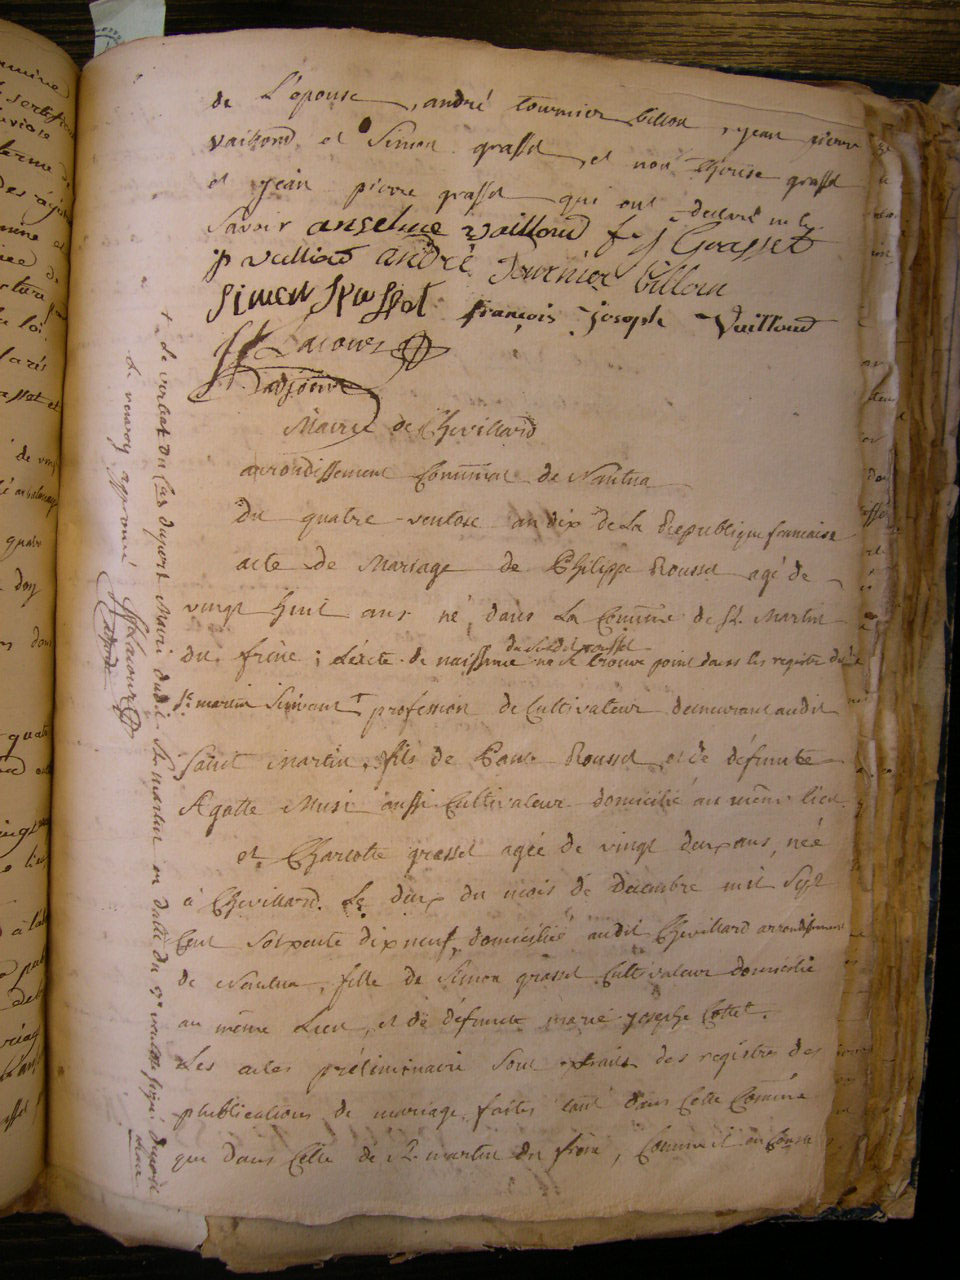 de L'épouse, andré tournier billon, jean pierre
vailloud et Simon grasset, et non Thérèse grasset
et jean pierre grasset qui ont declaré ne le
Savoir anselme vailloud fx j Grasset
jp vuilliod andré Tournier billon
Simon Grasset françois joseph Vuilloud
Lacour
adjoint
Mairie de Chevillard
arrondissement Commünal de Nantua
Du quatre ventose an dix de La Republique francaise
acte de Mariage de Philippe Roussel agé de
vingt huit ans né, dans La Commune de St. Martin
du frene ; L'acte de naissance
du
ne se trouve point dans les registre de
St. martin suivant + profession de Cultivateur demeurant audit
Saint Martin, fils de Roussel et de défunte
Agatte Musi aussi Cultivateur domicilié au même lieu
et Charlotte grasset agée de vingt deux ans, née
à Chevillard. Le deux du mois de decembre mil Sept
Cent Soixante dix neuf, domiciliée audit Chevillard arrondissement
de Nantua, fille de Simon grasset Cultivateur domicilié
au même Lieu, et de défunte marie josephe Cottet.
Les actes préliminaire Sont extraits des registres des
publications de mariage faites tant dans Cette Commune
que dans Celle de St. martin du frene, Comme il en Conste
+ Le verbal du Maire dudit St. martin en datte du ventose signé
Le renvoy approuvé
Lacour
adjoint